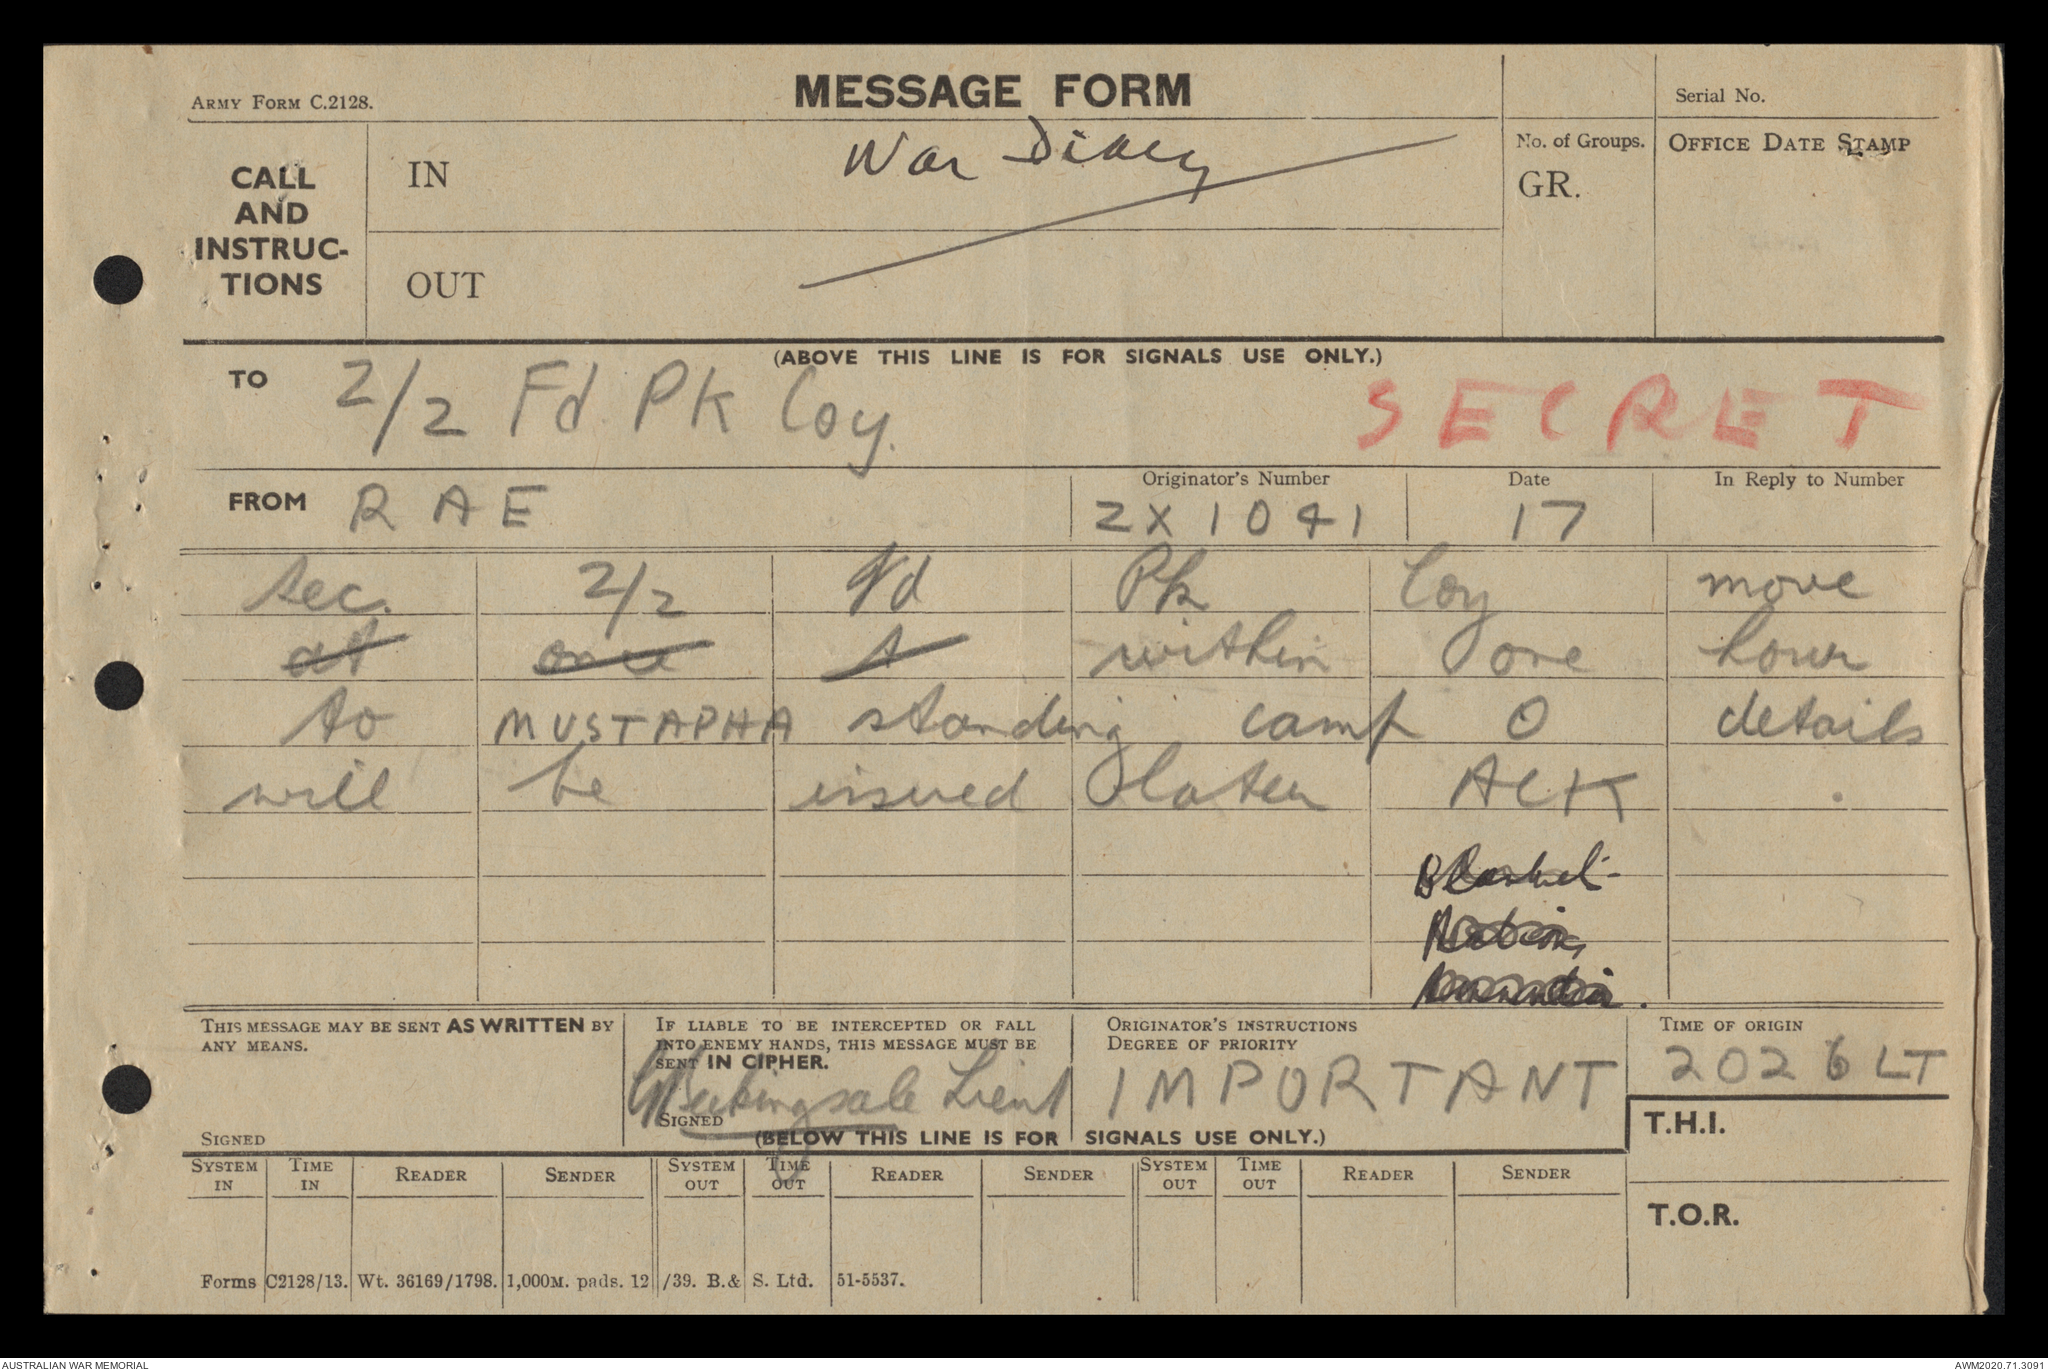 ARMY FORM C.2128.
MESSAGE FORM
Serial No.
CALL AND INSTRUC-TIONS
IN
War Diary
No. of Groups.
GR.
OFFICE DATE STAMP
OUT
(ABOVE THIS LINE IS FOR SIGNALS USE ONLY.)
TO 2/2 Fd. Pk Coy.
SECRET
FROM RAE
Originator's Number 2X1041
Date 17
In Reply to Number
Sec. 2/2 Fd Pk Coy move
at once t within one hour
to MUSTAPHA standing camp O details
will be issued later ACK .
THIS MESSAGE MAY BE SENT AS WRITTEN BY ANY MEANS.
SIGNED
IF LIABLE TO BE INTERCEPTED OR FALL INTO ENEMY HANDS, THIS MESSAGE MUST BE SENT IN CIPHER.
SIGNED Lieut
ORIGINATOR'S INSTRUCTIONS
DEGREE OF PRIORITY
IMPORTANT
TIME OF ORIGIN
2026 LT
T.H.I.
(BELOW THIS LINE IS FOR SIGNALS USE ONLY.)
SYSTEM IN TIME IN READER SENDER SYSTEM OUT TIME OUT READER SENDER SYSTEM OUT TIME OUT READER SENDER
T.O.R.
Forms C2128/13. Wt. 36169/1798. 1,000M. pads. 12/39. B.& S. Ltd. 51-5537.
AUSTRALIAN WAR MEMORIAL
AWM2020.71.3091